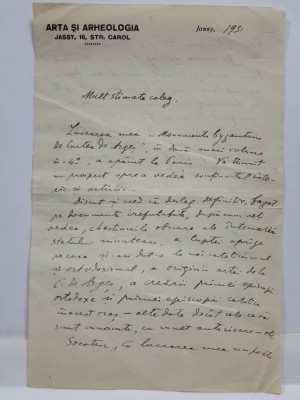 ARTA ȘI ARHEOLOGIA
JASSY, 16, STR. CAROL
JASSY, 193
Mult stimate coleg,
Lucrarea mea „Monuments byzantins
de Curtea de Argeș", în două mari volume
in-4°, a apărut la Paris. Vă trimit
un prospect spre a vedea conținutul isto-
ric și artistic.
Discut și cred că desleg definitiv, bazat
pe documente irefutabile, după cum veți
vedea, chestiunile obscure ale întemeierii
statului muntean, a luptei aprige
pecare și-au dat-o la noi catolicismul
și ortodoxismul, a originii artei dela
C. de Argeș, a creării primei episcopii
ortodoxe și primei episcopii catolice
în acest oraș – alte date decât cele ce vă
sunt cunoscute, cu mult anterioare – etc
Socotesc, că lucrarea mea nu poate